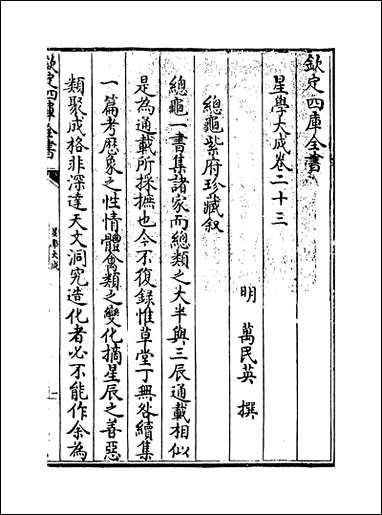 欽定四庫全書
星學大成卷二十三
明 萬民英 撰
總龜紫府珍藏叙
總龜一書集諸家而總類之大半與三辰通載相似
是為通載所採摭也今不復録惟草堂丁無咎續集
一篇考厯象之性情體禽類之變化摘星辰之善惡
類聚成格非深達天文洞究造化者必不能作余為
欽定四庫全書
星學大成